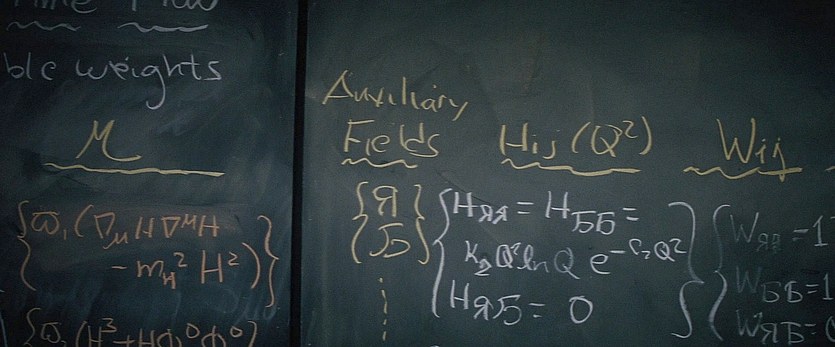 ble weights
M
{ϖ₁(∇_μH∇^μH
- m_H² H²)}
{ϖ₂(H³+HΦ⁰Φ⁰)
Auxiliary
Fields
{Я}
{Б}
Hij(Q²)
{H_ЯЯ = H_ББ =
k₂Q²lnQ e^{-c₂Q²}
H_ЯБ = 0}
Wij
{W_ЯЯ = 1
W_ББ = 1
W_ЯБ =